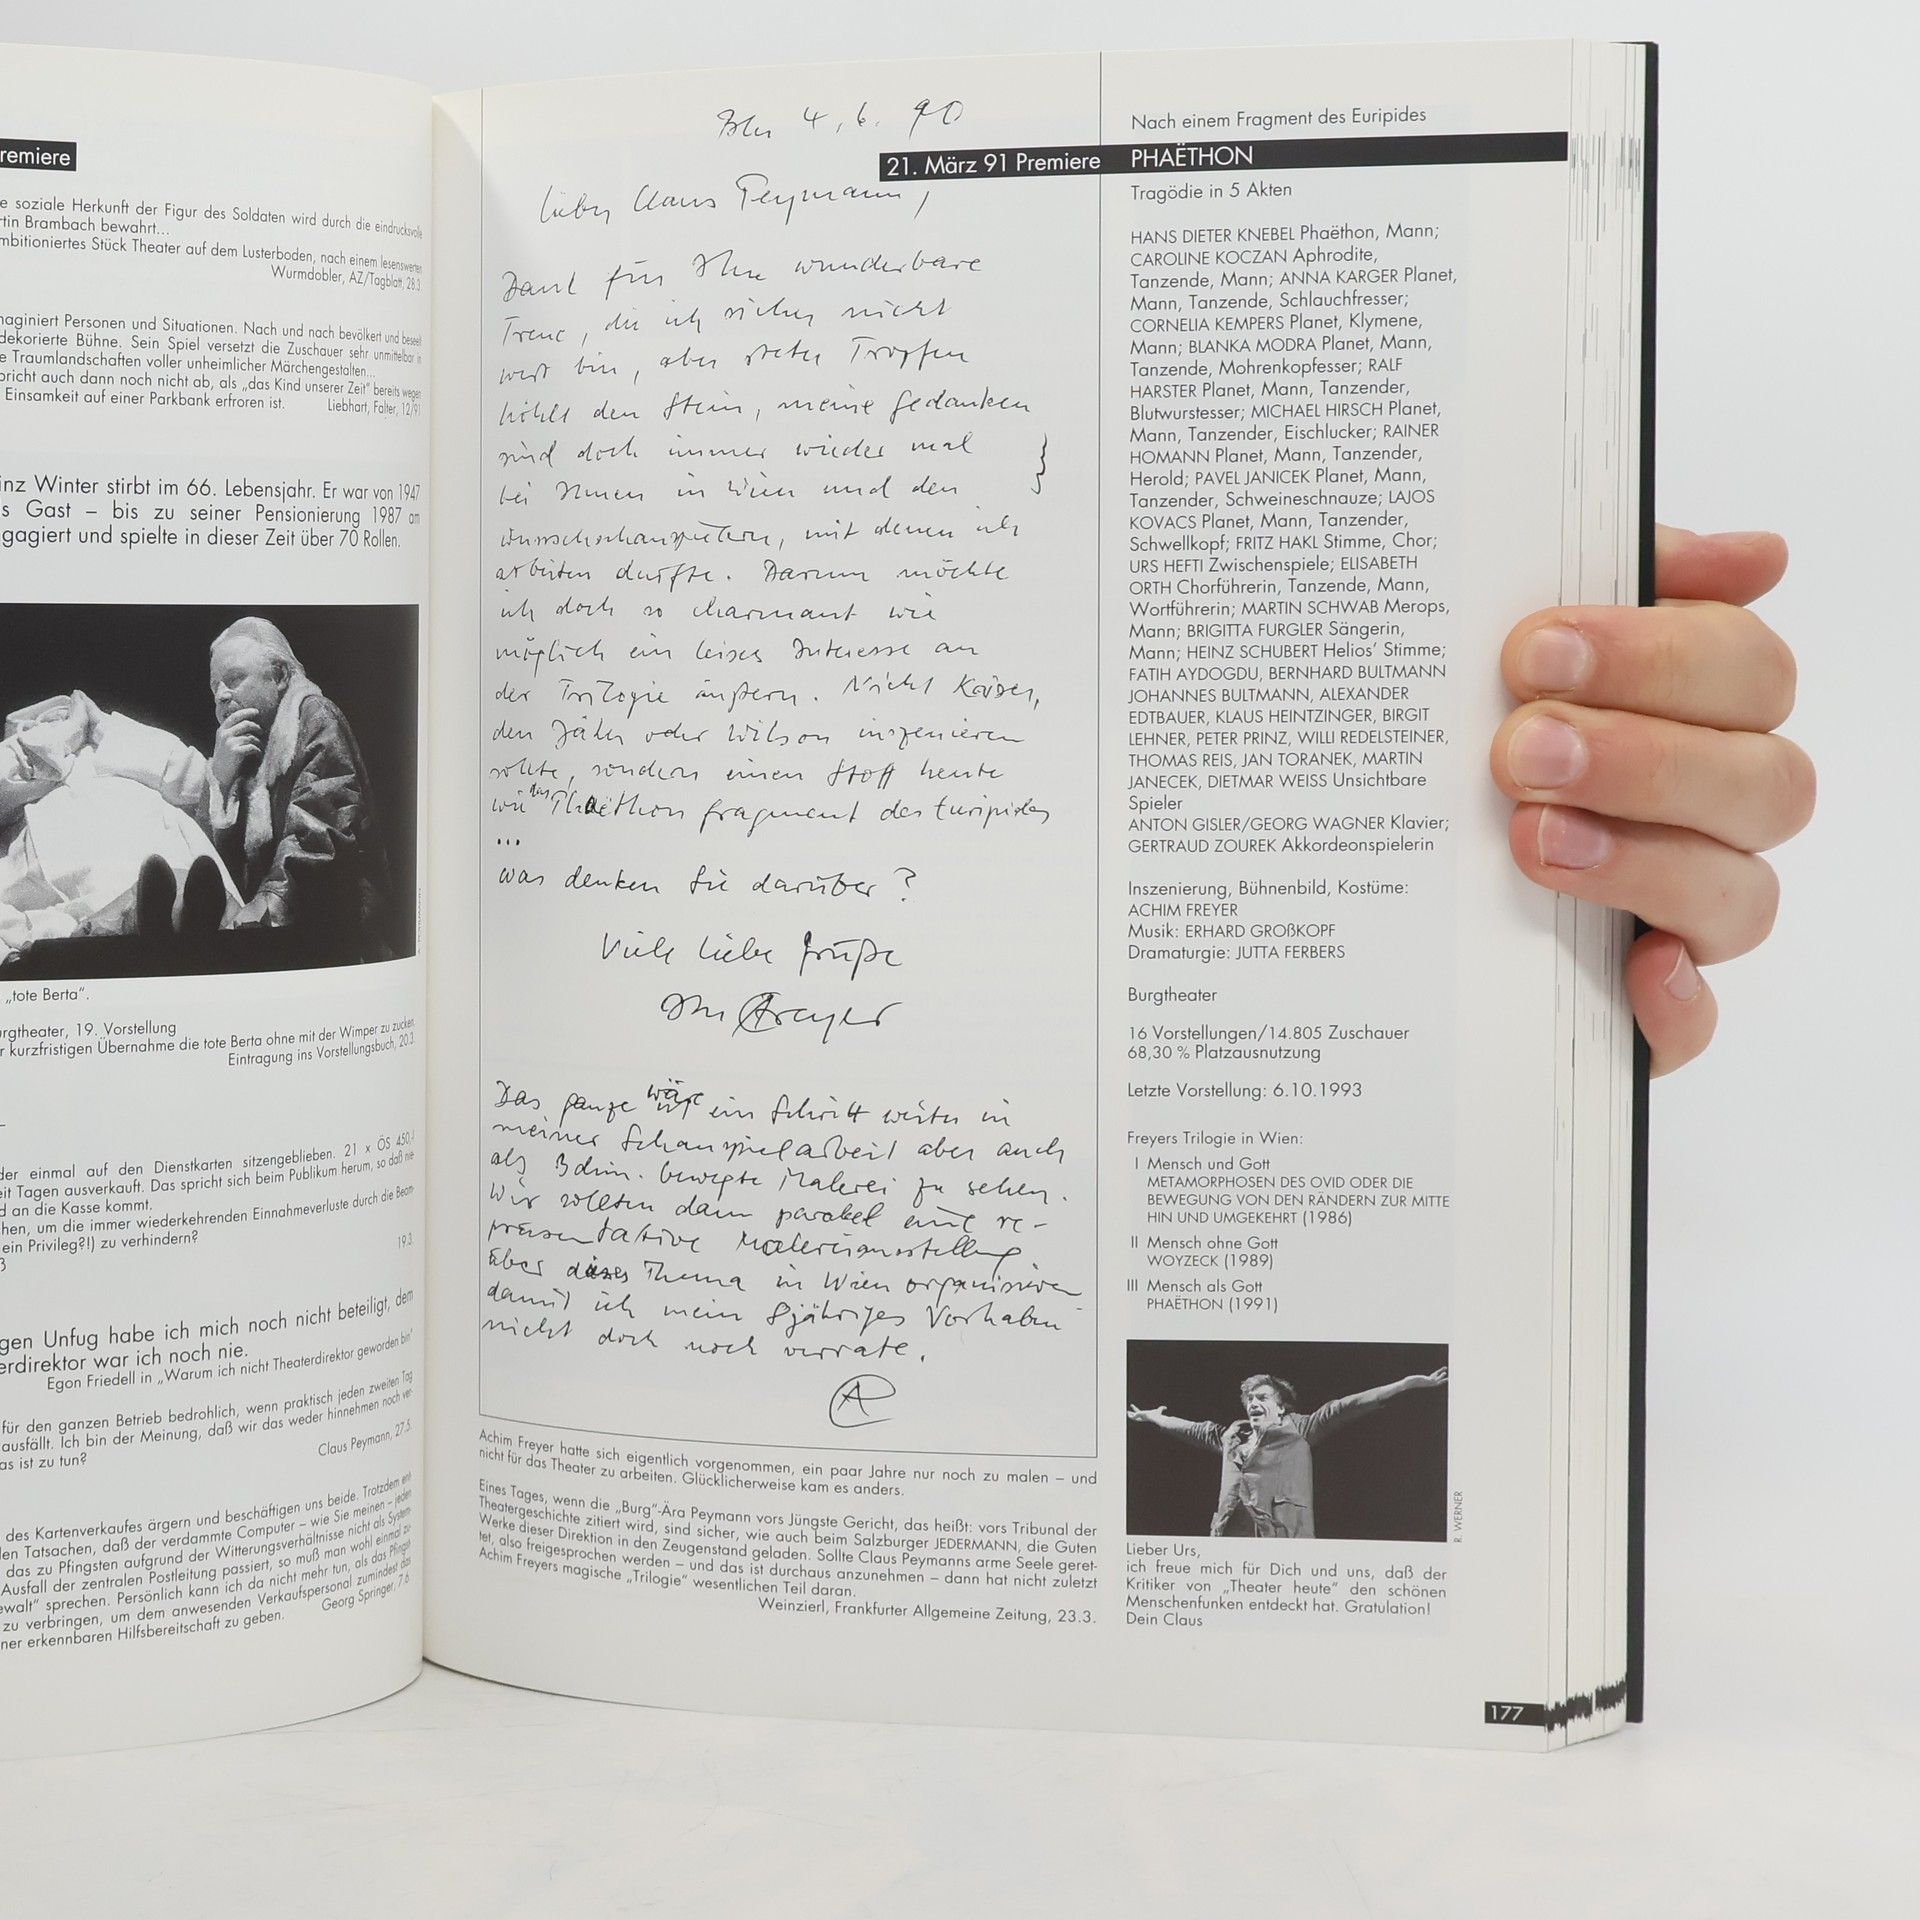 remiere
e soziale Herkunft der Figur des Soldaten wird durch die eindrucksvolle
rtin Brambach bewahrt...
mbitioniertes Stück Theater auf dem Lusterboden, nach einem lesenswerten
Wurmdobler, AZ/Tagblatt, 28.3.
naginiert Personen und Situationen. Nach und nach bevölkert und beseelt
dekorierte Bühne. Sein Spiel versetzt die Zuschauer sehr unmittelbar in
e Traumlandschaften voller unheimlicher Märchengestalten...
pricht auch dann noch nicht ab, als „das Kind unserer Zeit“ bereits wegen
Einsamkeit auf einer Parkbank erfroren ist. Liebhart, Falter, 12/91
inz Winter stirbt im 66. Lebensjahr. Er war von 1947
s Gast – bis zu seiner Pensionierung 1987 am
gagiert und spielte in dieser Zeit über 70 Rollen.
„tote Berta“.
urgtheater, 19. Vorstellung
r kurzfristigen Übernahme die tote Berta ohne mit der Wimper zu zucken.
Eintragung ins Vorstellungsbuch, 20.3.
der einmal auf den Dienstkarten sitzengeblieben. 21 x ÖS 450,-
eit Tagen ausverkauft. Das spricht sich beim Publikum herum, so daß nie
d an die Kasse kommt.
chen, um die immer wiederkehrenden Einnahmeverluste durch die Beam-
ein Privileg?!) zu verhindern?
19.3.
gen Unfug habe ich mich noch nicht beteiligt, dem
erdirektor war ich noch nie.
Egon Friedell in „Warum ich nicht Theaterdirektor geworden bin“
für den ganzen Betrieb bedrohlich, wenn praktisch jeden zweiten Tag
ausfällt. Ich bin der Meinung, daß wir das weder hinnehmen noch ver-
as ist zu tun? Claus Peymann, 27.5.
des Kartenverkaufes ärgern und beschäftigen uns beide. Trotzdem ent-
den Tatsachen, daß der verdammte Computer – wie Sie meinen – jeden
das zu Pfingsten aufgrund der Witterungsverhältnisse nicht als System-
Ausfall der zentralen Postleitung passiert, so muß man wohl einmal zu-
ewalt“ sprechen. Persönlich kann ich da nicht mehr tun, als das Pfingst
zu verbringen, um dem anwesenden Verkaufspersonal zumindest das
ner erkennbaren Hilfsbereitschaft zu geben. Georg Springer, 7.6.
Bln 4.6.90
21. März 91 Premiere
lieber Claus Peymann,
Dank für Ihre wunderbare
Treue, die ich sicher nicht
wert bin, aber steter Tropfen
höhlt den Stein, meine Gedanken
sind doch immer wieder mal
bei Ihnen in Wien und den
Wunschschauspielern, mit denen ich
arbeiten durfte. Darum möchte
ich doch so charmant wie
möglich ein leises Interesse an
der Trilogie äußern. Nicht Kaiser,
den Jäher oder Wilson inszenieren
sollte, sondern einen Stoff heute
wie das Phaëthon fragment des Euripides
...
was denken Sie darüber?
Viele liebe Grüße
Ihr AFreyer
Das ganze wäre ein Schritt weiter in
meiner Schauspielarbeit aber auch
als 3dim. bewegte Malerei zu sehen.
Wir sollten dann parallel eine re-
präsentative Malereiausstellung
über dieses Thema in Wien organisieren
damit ich mein 8jähriges Vorhaben
nicht doch noch verrate.
A
Achim Freyer hatte sich eigentlich vorgenommen, ein paar Jahre nur noch zu malen – und
nicht für das Theater zu arbeiten. Glücklicherweise kam es anders.
Eines Tages, wenn die „Burg“-Ära Peymann vors Jüngste Gericht, das heißt: vors Tribunal der
Theatergeschichte zitiert wird, sind sicher, wie auch beim Salzburger JEDERMANN, die Guten
Werke dieser Direktion in den Zeugenstand geladen. Sollte Claus Peymanns arme Seele geret-
tet, also freigesprochen werden – und das ist durchaus anzunehmen – dann hat nicht zuletzt
Achim Freyers magische „Trilogie“ wesentlichen Teil daran.
Weinzierl, Frankfurter Allgemeine Zeitung, 23.3.
Nach einem Fragment des Euripides
PHAËTHON
Tragödie in 5 Akten
HANS DIETER KNEBEL Phaëthon, Mann;
CAROLINE KOCZAN Aphrodite,
Tanzende, Mann; ANNA KARGER Planet,
Mann, Tanzende, Schlauchfresser;
CORNELIA KEMPERS Planet, Klymene,
Mann; BLANKA MODRA Planet, Mann,
Tanzende, Mohrenkopfesser; RALF
HARSTER Planet, Mann, Tanzender,
Blutwurstesser; MICHAEL HIRSCH Planet,
Mann, Tanzender, Eischlucker; RAINER
HOMANN Planet, Mann, Tanzender,
Herold; PAVEL JANICEK Planet, Mann,
Tanzender, Schweineschnauze; LAJOS
KOVACS Planet, Mann, Tanzender,
Schwellkopf; FRITZ HAKL Stimme, Chor;
URS HEFTI Zwischenspiele; ELISABETH
ORTH Chorführerin, Tanzende, Mann,
Wortführerin; MARTIN SCHWAB Merops,
Mann; BRIGITTA FURGLER Sängerin,
Mann; HEINZ SCHUBERT Helios’ Stimme;
FATIH AYDOGDU, BERNHARD BULTMANN
JOHANNES BULTMANN, ALEXANDER
EDTBAUER, KLAUS HEINTZINGER, BIRGIT
LEHNER, PETER PRINZ, WILLI REDELSTEINER,
THOMAS REIS, JAN TORANEK, MARTIN
JANECEK, DIETMAR WEISS Unsichtbare
Spieler
ANTON GISLER/GEORG WAGNER Klavier;
GERTRAUD ZOUREK Akkordeonspielerin
Inszenierung, Bühnenbild, Kostüme:
ACHIM FREYER
Musik: ERHARD GROßKOPF
Dramaturgie: JUTTA FERBERS
Burgtheater
16 Vorstellungen/14.805 Zuschauer
68,30 % Platzausnutzung
Letzte Vorstellung: 6.10.1993
Freyers Trilogie in Wien:
I Mensch und Gott
METAMORPHOSEN DES OVID ODER DIE
BEWEGUNG VON DEN RÄNDERN ZUR MITTE
HIN UND UMGEKEHRT (1986)
II Mensch ohne Gott
WOYZECK (1989)
III Mensch als Gott
PHAËTHON (1991)
R. WERNER
Lieber Urs,
ich freue mich für Dich und uns, daß der
Kritiker von „Theater heute“ den schönen
Menschenfunken entdeckt hat. Gratulation!
Dein Claus
177